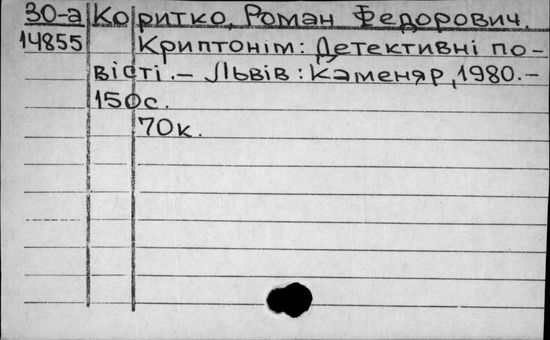 30-а Коритко, Роман Федорович.
14855 Криптонім: Детективні по-
вісті. – Львів: Каменяр, 1980. –
150с.
70к.